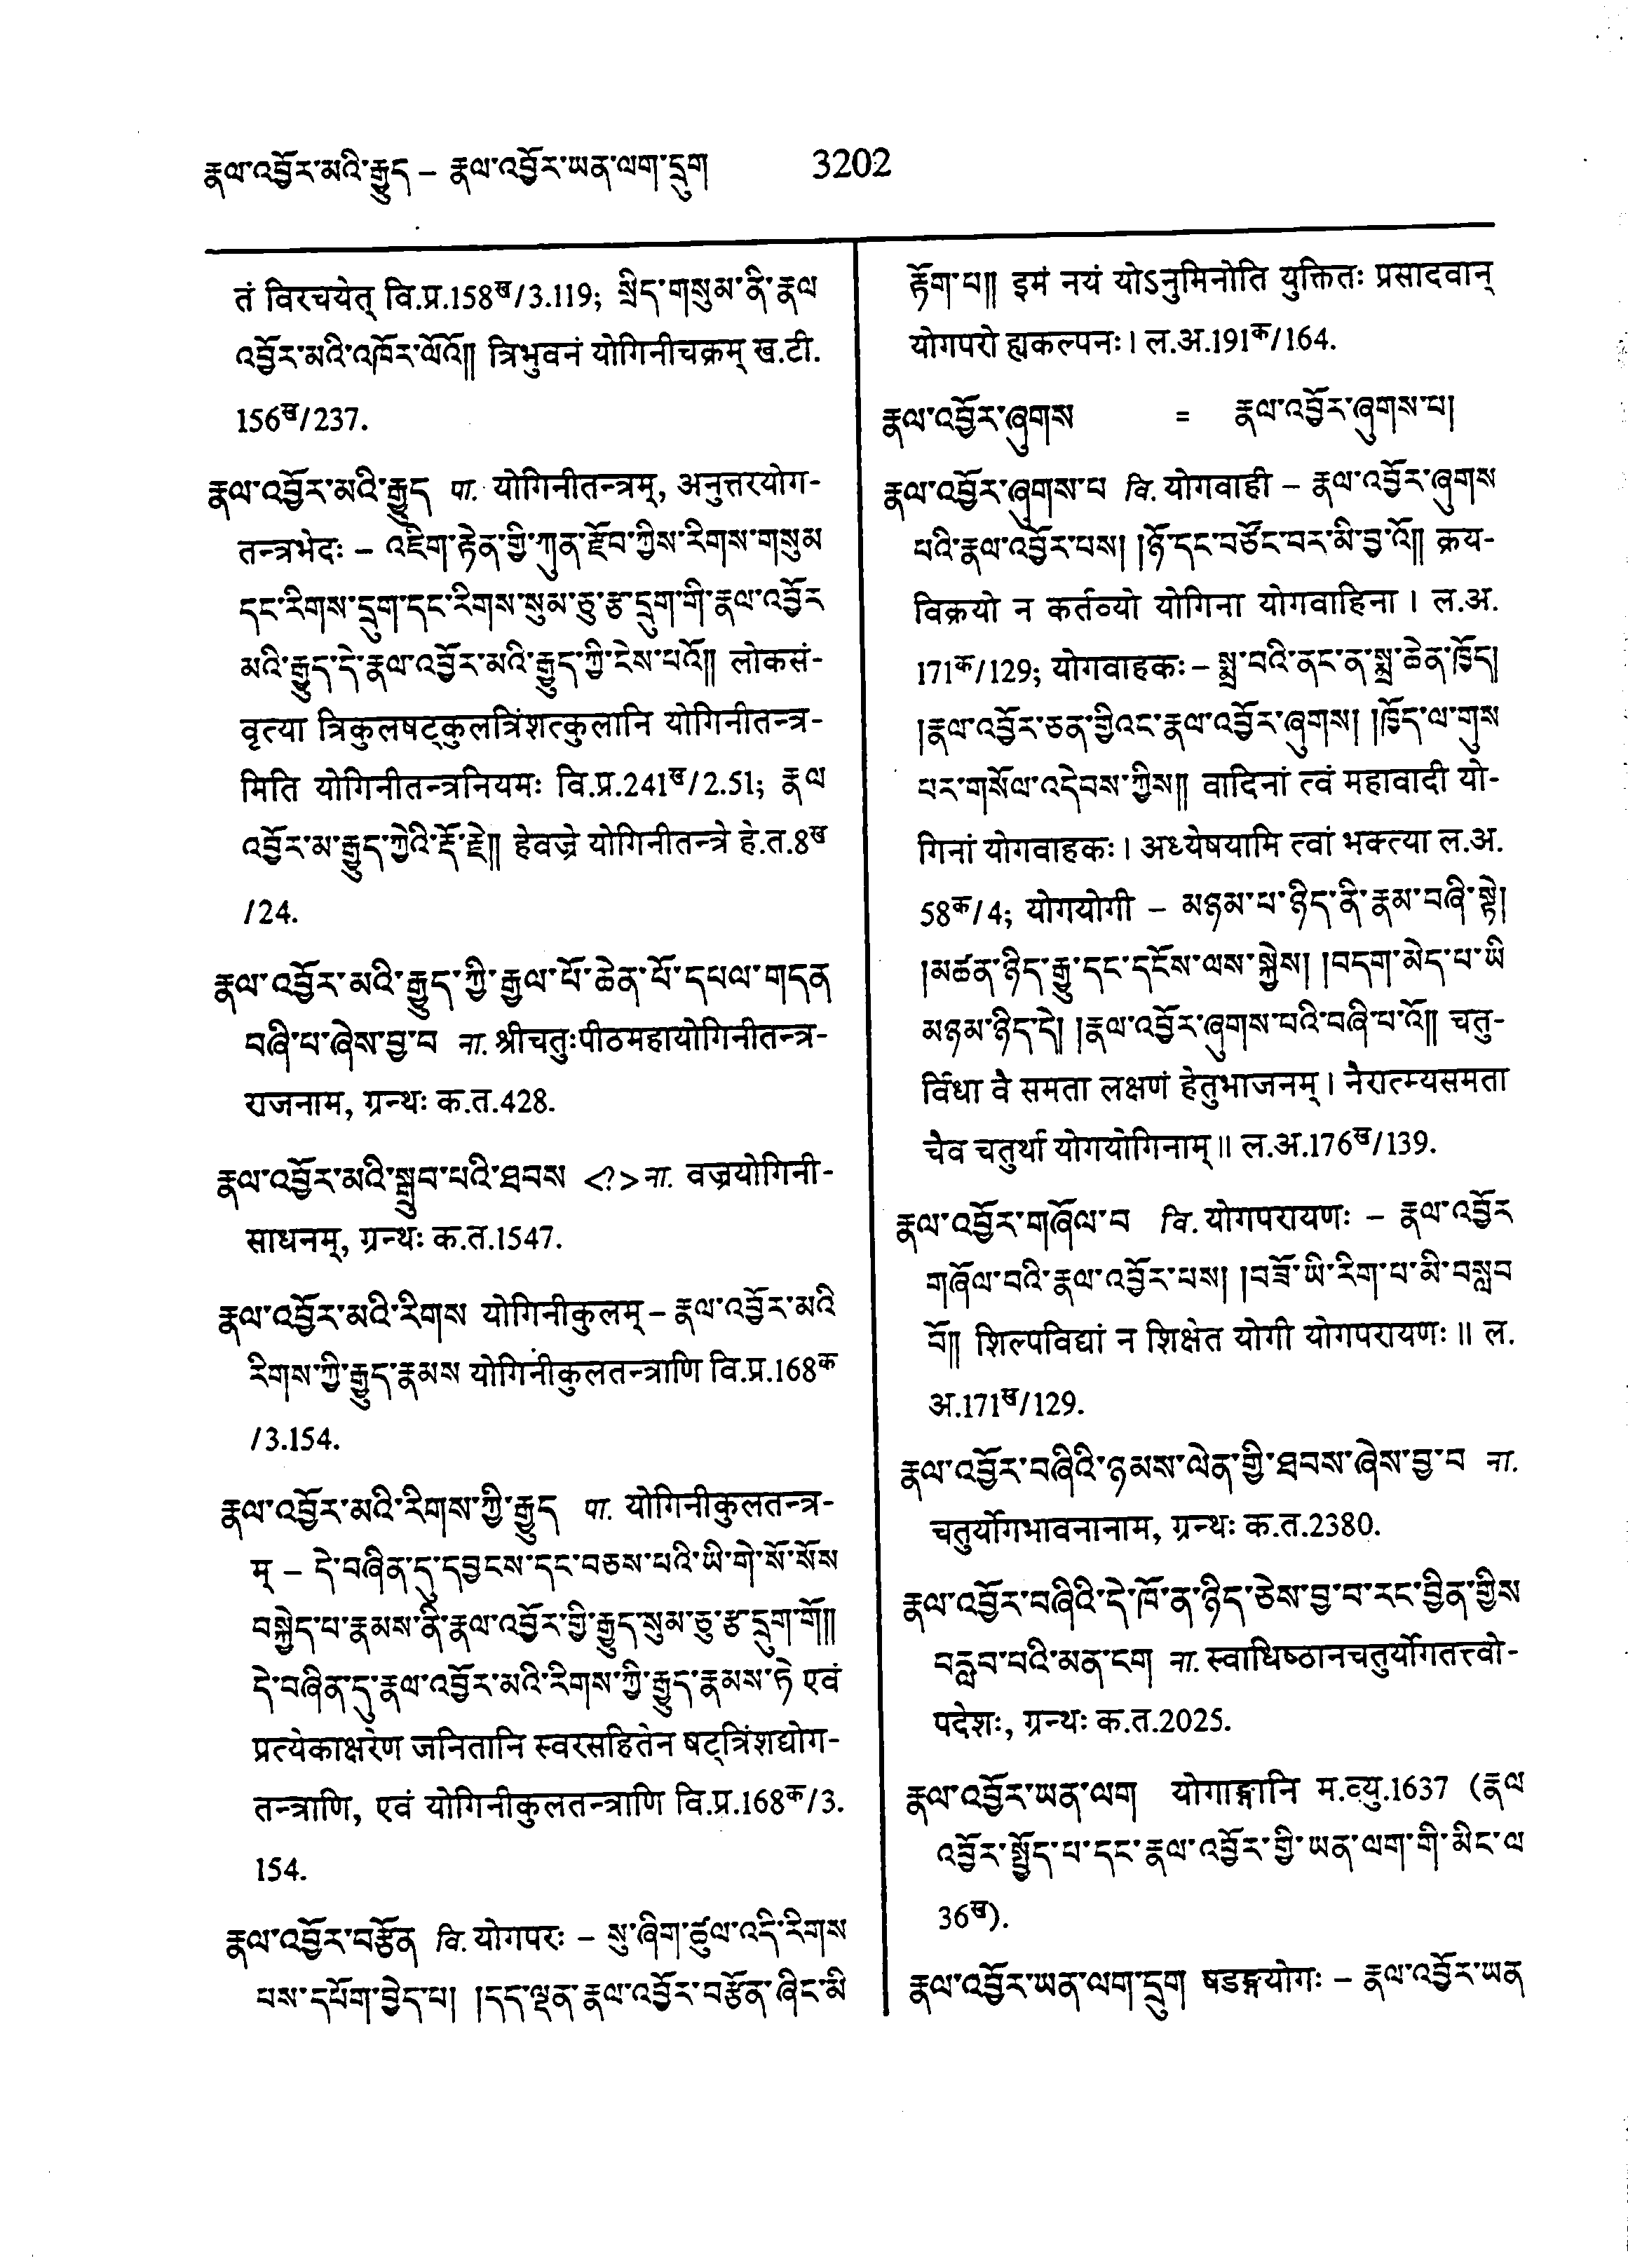 རྣལ་འབྱོར་མའི་རྒྱུད – རྣལ་འབྱོར་ཡན་ལག་དྲུག 3202
तं विरचयेत् वि.प्र.158ख/3.119; སྲིད་གསུམ་ནི་རྣལ
འབྱོར་མའི་འཁོར་ལོའོ།། त्रिभुवनं योगिनीचक्रम् ख.टी.
156ख/237.
རྣལ་འབྱོར་མའི་རྒྱུད पा. योगिनीतन्त्रम्, अनुत्तरयोग-
तन्त्रभेदः – འཇིག་རྟེན་གྱི་ཀུན་རྫོབ་ཀྱིས་རིགས་གསུམ
དང་རིགས་དྲུག་དང་རིགས་སུམ་ཅུ་རྩ་དྲུག་གི་རྣལ་འབྱོར
མའི་རྒྱུད་དེ་རྣལ་འབྱོར་མའི་རྒྱུད་ཀྱི་ངེས་པའོ།། लोकसं-
वृत्या त्रिकुलषट्कुलत्रिंशत्कुलानि योगिनीतन्त्र-
मिति योगिनीतन्त्रनियमः वि.प्र.241ख/2.51; རྣལ
འབྱོར་མ་རྒྱུད་ཀྱེའི་རྡོ་རྗེ།། हेवज्रे योगिनीतन्त्रे हे.त.8ख
/24.
རྣལ་འབྱོར་མའི་རྒྱུད་ཀྱི་རྒྱལ་པོ་ཆེན་པོ་དཔལ་གདན
བཞི་པ་ཞེས་བྱ་བ ना. श्रीचतुःपीठमहायोगिनीतन्त्र-
राजनाम, ग्रन्थः क.त.428.
རྣལ་འབྱོར་མའི་སྒྲུབ་པའི་ཐབས <?> ना. वज्रयोगिनी-
साधनम्, ग्रन्थः क.त.1547.
རྣལ་འབྱོར་མའི་རིགས योगिनीकुलम् – རྣལ་འབྱོར་མའི
རིགས་ཀྱི་རྒྱུད་རྣམས योगिनीकुलतन्त्राणि वि.प्र.168क
/3.154.
རྣལ་འབྱོར་མའི་རིགས་ཀྱི་རྒྱུད पा. योगिनीकुलतन्त्र-
म् – དེ་བཞིན་དུ་དབྱངས་དང་བཅས་པའི་ཡི་གེ་སོ་སོས
བསྐྱེད་པ་རྣམས་ནི་རྣལ་འབྱོར་གྱི་རྒྱུད་སུམ་ཅུ་རྩ་དྲུག་གོ།།
དེ་བཞིན་དུ་རྣལ་འབྱོར་མའི་རིགས་ཀྱི་རྒྱུད་རྣམས་ཏེ एवं
प्रत्येकाक्षरेण जनितानि स्वरसहितेन षट्त्रिंशद्योग-
तन्त्राणि, एवं योगिनीकुलतन्त्राणि वि.प्र.168क/3.
154.
རྣལ་འབྱོར་བརྩོན वि. योगपरः – སུ་ཞིག་ཚུལ་འདི་རིགས
པས་དཔོག་བྱེད་པ། །དད་ལྡན་རྣལ་འབྱོར་བརྩོན་ཞིང་མི
རྟོག་པ།། इमं नयं योऽनुमिनोति युक्तितः प्रसादवान्
योगपरो ह्यकल्पनः। ल.अ.191क/164.
རྣལ་འབྱོར་ཞུགས = རྣལ་འབྱོར་ཞུགས་པ།
རྣལ་འབྱོར་ཞུགས་པ वि. योगवाही – རྣལ་འབྱོར་ཞུགས
པའི་རྣལ་འབྱོར་པས། །ཉོ་དང་བཙོང་བར་མི་བྱ་འོ།། क्रय-
विक्रयो न कर्तव्यो योगिना योगवाहिना। ल.अ.
171क/129; योगवाहकः – སྨྲ་བའི་ནང་ན་སྨྲ་ཆེན་ཁྱོད།
།རྣལ་འབྱོར་ཅན་གྱིའང་རྣལ་འབྱོར་ཞུགས། །ཁྱོད་ལ་གུས
པར་གསོལ་འདེབས་ཀྱིས།། वादिनां त्वं महावादी यो-
गिनां योगवाहकः। अध्येषयामि त्वां भक्त्या ल.अ.
58क/4; योगयोगी – མཉམ་པ་ཉིད་ནི་རྣམ་བཞི་སྟེ།
།མཚན་ཉིད་རྒྱུ་དང་དངོས་ལས་སྐྱེས། །བདག་མེད་པ་ཡི
མཉམ་ཉིད་དེ། །རྣལ་འབྱོར་ཞུགས་པའི་བཞི་པ་འོ།། चतु-
र्विधा वै समता लक्षणं हेतुभाजनम्। नैरात्म्यसमता
चैव चतुर्था योगयोगिनाम्॥ ल.अ.176ख/139.
རྣལ་འབྱོར་གཞོལ་བ वि. योगपरायणः – རྣལ་འབྱོར
གཞོལ་བའི་རྣལ་འབྱོར་པས། །བཟོ་ཡི་རིག་པ་མི་བསླབ
བོ།། शिल्पविद्यां न शिक्षेत योगी योगपरायणः॥ ल.
अ.171ख/129.
རྣལ་འབྱོར་བཞིའི་ཉམས་ལེན་གྱི་ཐབས་ཞེས་བྱ་བ ना.
चतुर्योगभावनानाम, ग्रन्थः क.त.2380.
རྣལ་འབྱོར་བཞིའི་དེ་ཁོ་ན་ཉིད་ཅེས་བྱ་བ་རང་བྱིན་གྱིས
བརླབ་པའི་མན་ངག ना. स्वाधिष्ठानचतुर्योगतत्त्वो-
पदेशः, ग्रन्थः क.त.2025.
རྣལ་འབྱོར་ཡན་ལག योगाङ्गानि म.व्यु.1637 (རྣལ
འབྱོར་སྤྱོད་པ་དང་རྣལ་འབྱོར་གྱི་ཡན་ལག་གི་མིང་ལ
36ख).
རྣལ་འབྱོར་ཡན་ལག་དྲུག षडङ्गयोगः – རྣལ་འབྱོར་ཡན